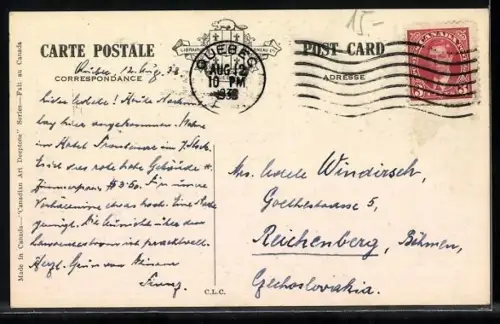 15-
CARTE POSTALE
POST CARD
CORRESPONDANCE
ADRESSE
QUEBEC
AUG 12
10 PM
1938
CANADA
3 3
Quebec 12. Aug. 38
Liebe Adele! Heute Nachmit-
tag hier angekommen. Wohne
im Hotel Frontenac im 7. Stock.
Es ist das rote hohe Gebäude #.
Zimmerpreis $3.50. Für unsere
Verhältnisse etwas hoch. Eine Nacht
genügt. Die Aussicht über den
Lawrencestrom ist prachtvoll.
Herzl. Grüsse von Deinem
Franz.
Mrs. Adele Windirsch,
Goethestrasse 5,
Reichenberg, Böhmen,
Czechoslovakia.
C.L.C.
Made in Canada—"Canadian Art Deeptone" Series—Fait au Canada